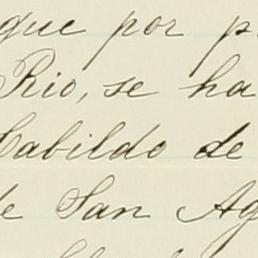 que por
Rio, se ha
Cabildo de
de San Ag